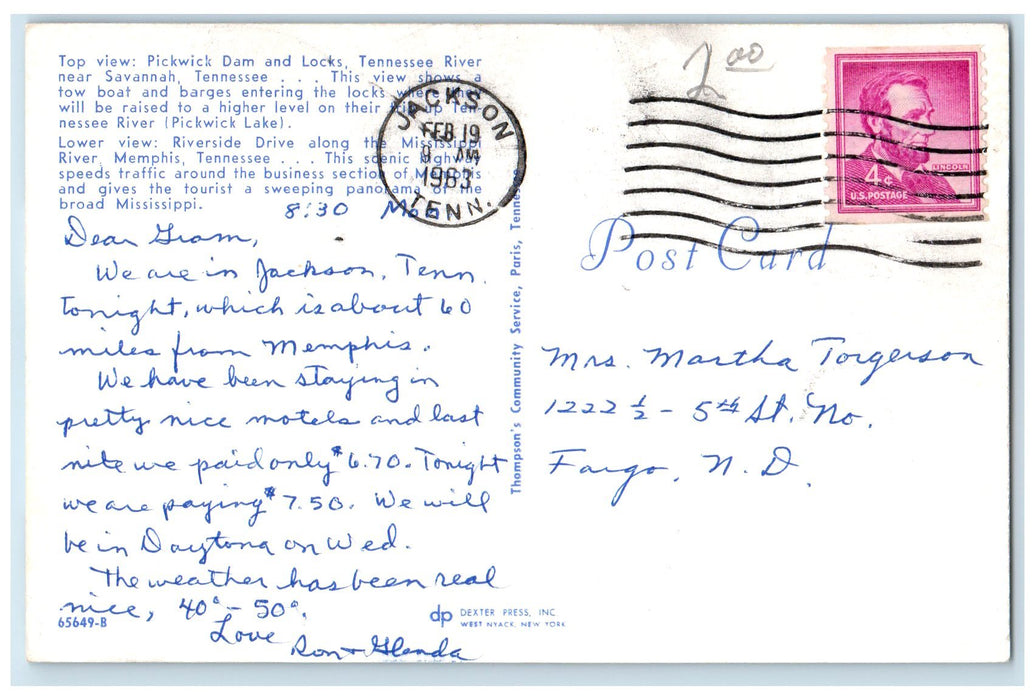 Top view: Pickwick Dam and Locks, Tennessee River
near Savannah, Tennessee . . . This view shows a
tow boat and barges entering the locks where they
will be raised to a higher level on their trip up Ten-
nessee River (Pickwick Lake).
Lower view: Riverside Drive along the Mississippi
River, Memphis, Tennessee . . . This scenic highway
speeds traffic around the business section of Memphis
and gives the tourist a sweeping panorama of the
broad Mississippi.
8:30 Mon
Dear Gram,
We are in Jackson, Tenn.
tonight, which is about 60
miles from Memphis.
We have been staying in
pretty nice motels and last
nite we paid only $6.70. Tonight
we are paying $7.50. We will
be in Daytona on Wed.
The weather has been real
nice, 40° - 50°.
Love
Ron + Glenda
65649-B
dp DEXTER PRESS, INC
WEST NYACK, NEW YORK
Thompson's Community Service, Paris, Tennessee
JACKSON
FEB 19
9 AM
1963
TENN.
2.00
LINCOLN
4¢
U.S. POSTAGE
Post Card
Mrs. Martha Torgerson
1222 ½ - 5th St. No.
Fargo, N. D.